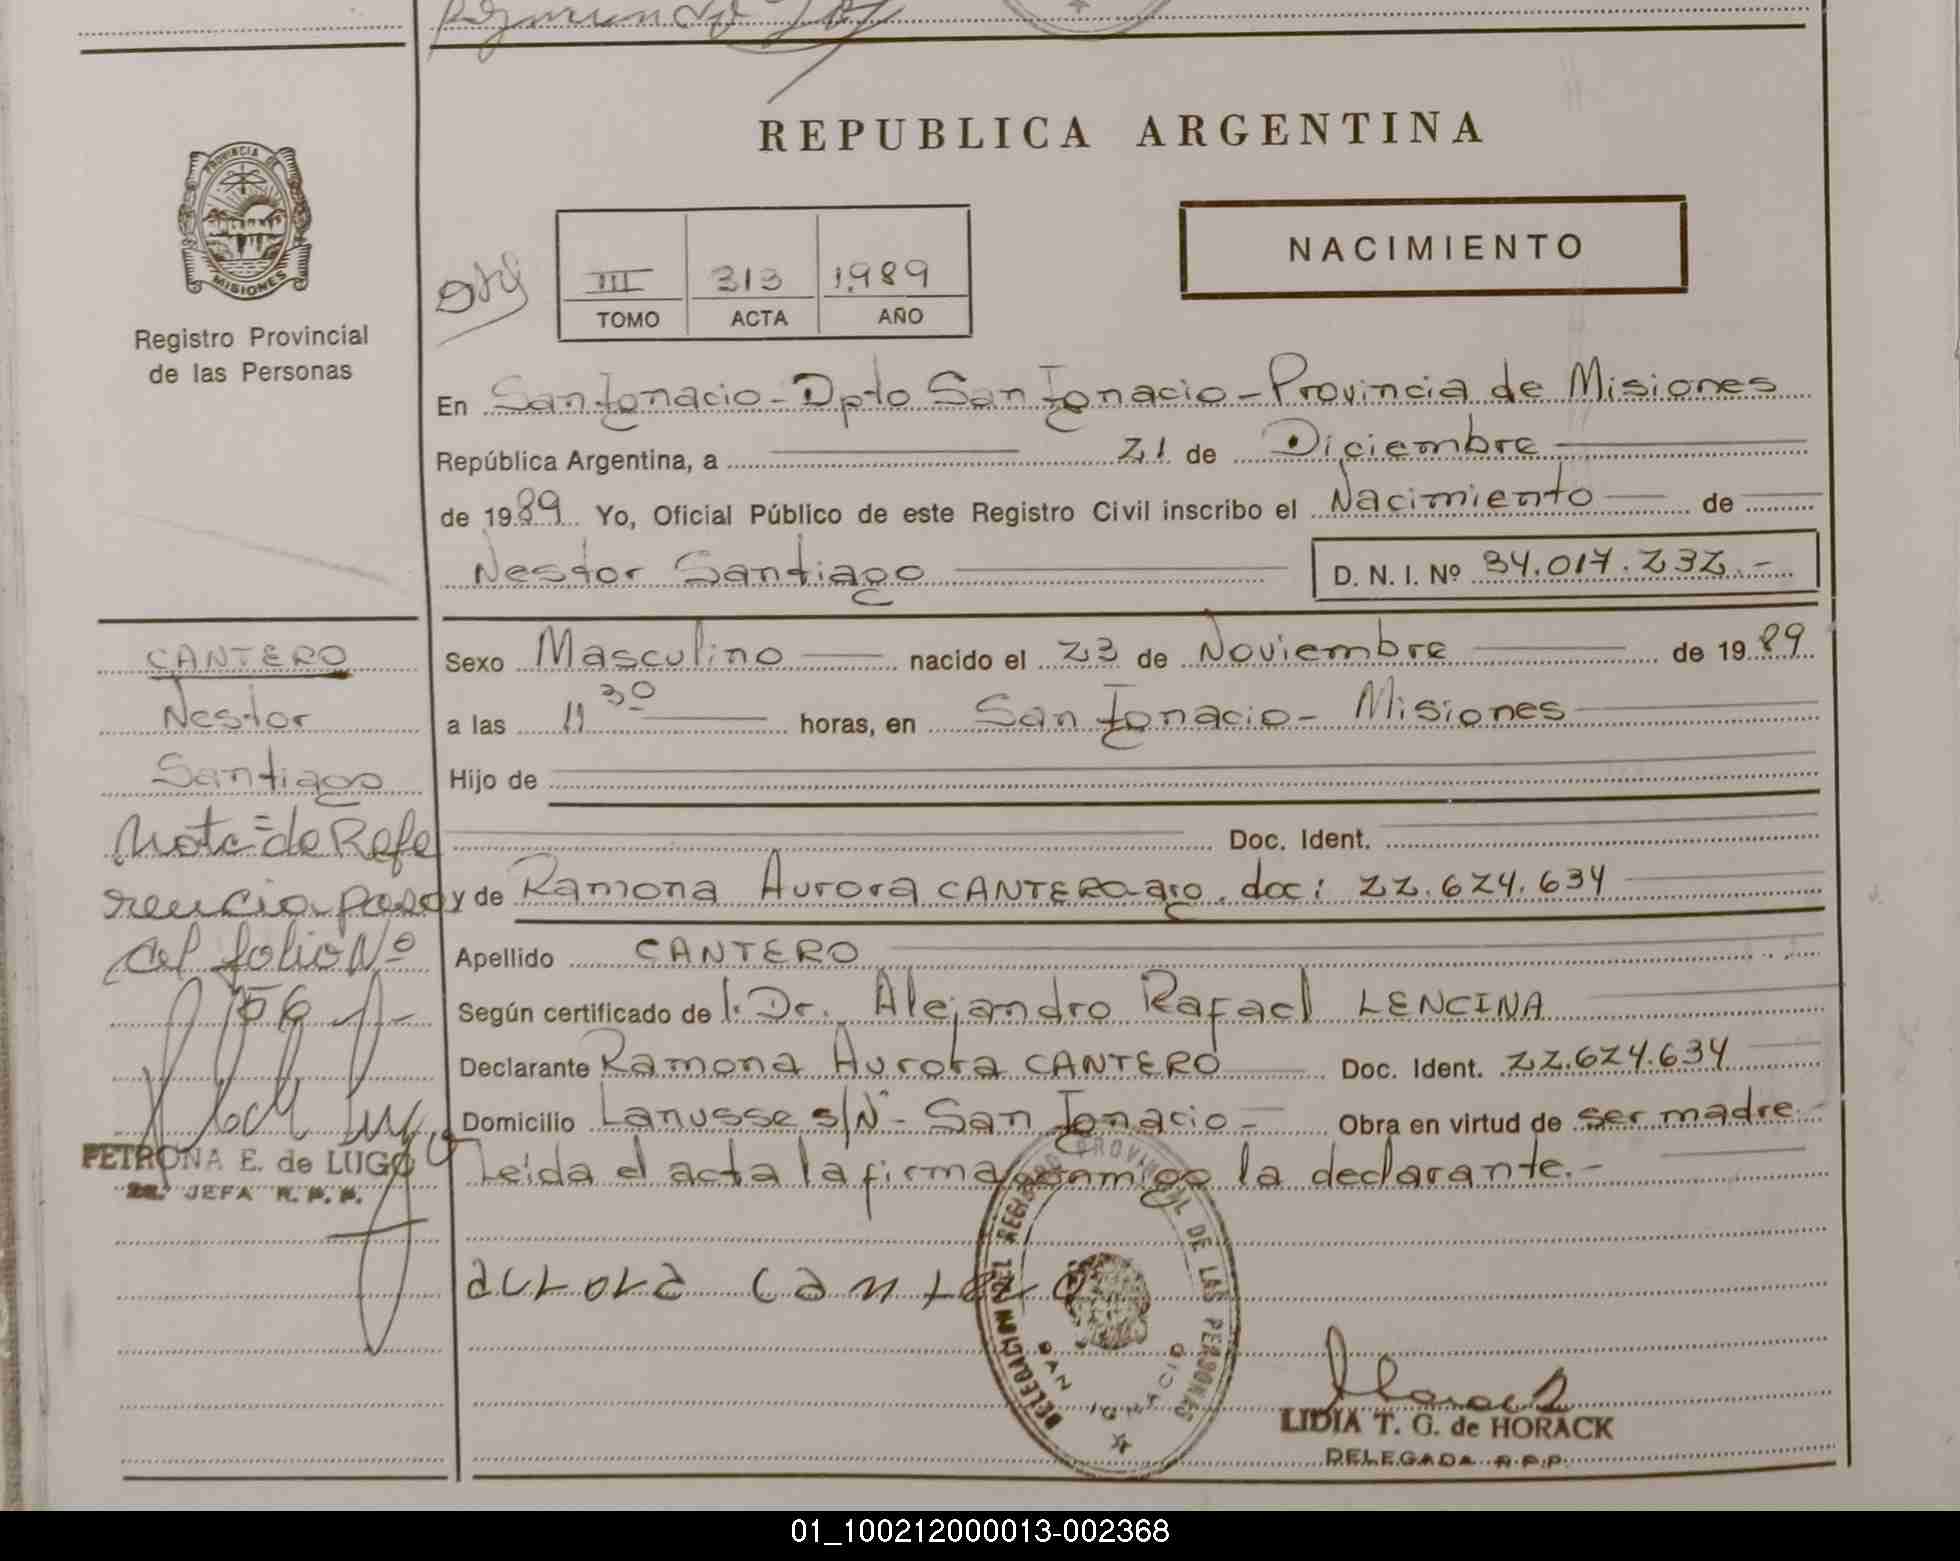 REPUBLICA ARGENTINA
PROVINCIA DE
MISIONES
Registro Provincial
de las Personas
NACIMIENTO
III 313 1989
TOMO ACTA AÑO
En San Ignacio - Dpto San Ignacio - Provincia de Misiones
República Argentina, a 21 de Diciembre
de 1989 Yo, Oficial Público de este Registro Civil inscribo el Nacimiento de
Nestor Santiago D. N. I. Nº 34.017.232.-
CANTERO
Nestor
Santiago
Nota = de Refe
rencia paso
al folio Nº
156
PETRONA E. de LUGO
2a. JEFA R. P. P.
Sexo Masculino nacido el 23 de Noviembre de 1989
a las 11 30 horas, en San Ignacio - Misiones
Hijo de
Doc. Ident.
y de Ramona Aurora CANTERO arg. doc: 22.624.634
Apellido CANTERO
Según certificado de l. Dr. Alejandro Rafael LENCINA
Declarante Ramona Aurora CANTERO Doc. Ident. 22.624.634
Domicilio Lanusse s/Nº - San Ignacio - Obra en virtud de ser madre -
Leida el acta la firma conmigo la declarante.-
aurora cantero
DELEGACION DEL REGISTRO PROVINCIAL DE LAS PERSONAS
SAN IGNACIO
LIDIA T. G. de HORACK
DELEGADA R.P.P.
01_100212000013-002368